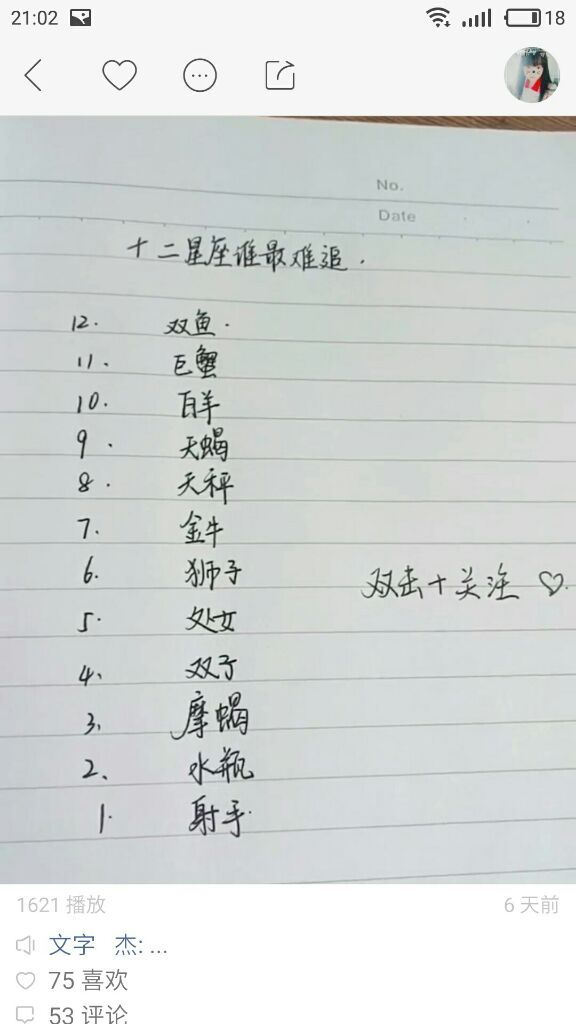 21:02
18
No.
Date
十二星座谁最难追.
12. 双鱼.
11. 巨蟹
10. 白羊
9. 天蝎
8. 天秤
7. 金牛
6. 狮子
双击+关注 ♡.
5. 处女
4. 双子
3. 摩蝎
2、 水瓶
1. 射手.
1621 播放
6 天前
文字 杰: ...
75 喜欢
53 评论